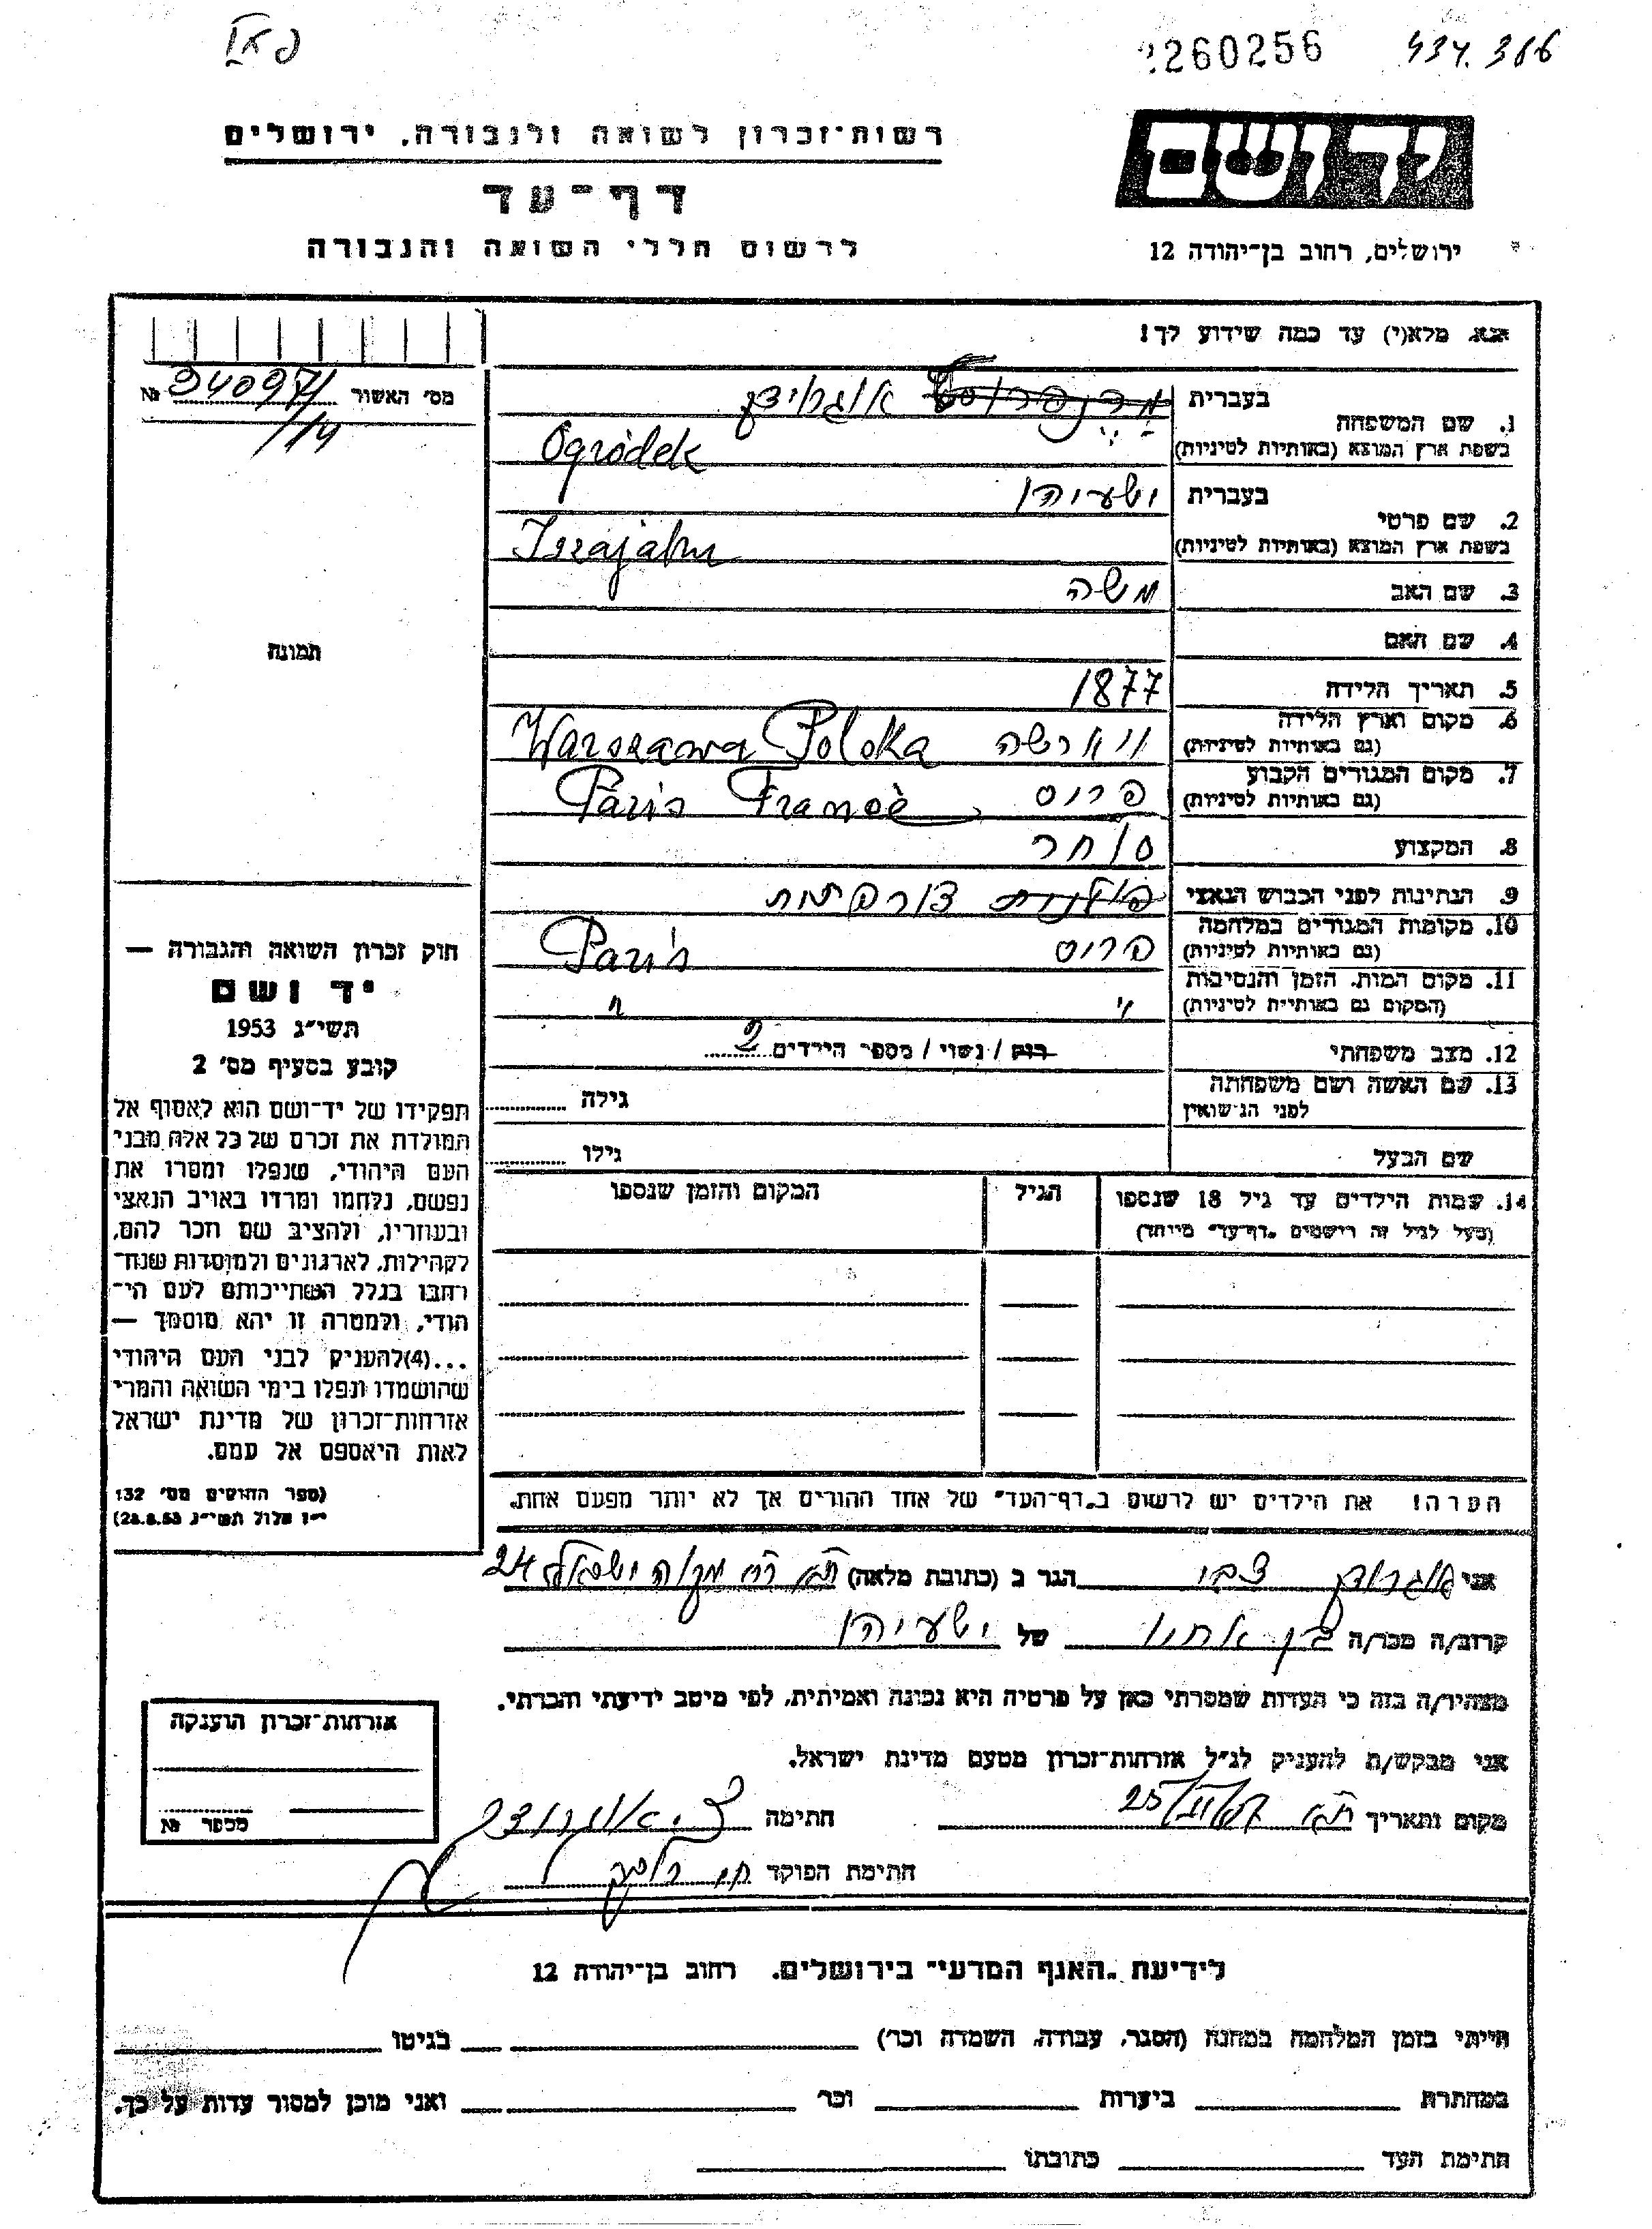 פאI
260256
434.316
רשות־זכרון לשואה ולגבורה, ירושלים
ידושם
דף־עד
לרשום חללי השואה והגבורה
ירושלים, רחוב בן־יהודה 12
אנא מלא(י) עד כמה שידוע לך!
מס׳ האשור № 94097/
114
1. שם המשפחה
בעברית אוגרודק
בשפת ארץ המוצא (באותיות לטיניות) Ogródek
2. שם פרטי
בעברית ישעיהו
בשפת ארץ המוצא (באותיות לטיניות) Iszajahu
3. שם האב משה
4. שם האם
תמונה
5. תאריך הלידה 1877
6. מקום וארץ הלידה
(גם באותיות לטיניות) ווארשה Warszawa Polska
7. מקום המגורים הקבוע
(גם באותיות לטיניות) פריס Paris France
8. המקצוע סוחר
9. הנתינות לפני הכבוש הנאצי פולנית צורפתית
10. מקומות המגורים במלחמה
(גם באותיות לטיניות) פריס Paris
11. מקום המות, הזמן והנסיבות
(המקום גם באותיות לטיניות) " "
12. מצב משפחתי רוק / נשוי / מספר הילדים 2
13. שם האשה ושם משפחתה
לפני הנישואין גילה
שם הבעל גילו
14. שמות הילדים עד גיל 18 שנספו
(מעל לגיל זה רישמים „דף־עד״ מייחד)
הגיל
המקום והזמן שנספו
הערה! את הילדים יש לרשום ב„דף־העד״ של אחד ההורים אך לא יותר מפעם אחת.
חוק זכרון השואה והגבורה —
יד ושם
תשי״ג 1953
קובע בסעיף מס׳ 2
תפקידו של יד־ושם הוא לאסוף אל
המולדת את זכרם של כל אלה מבני
העם היהודי, שנפלו ומסרו את
נפשם, נלחמו ומרדו באויב הנאצי
ובעוזריו, ולהציב שם וזכר להם,
לקהילות, לארגונים ולמוסדות שנח־
רבו בגלל השתייכותם לעם הי־
הודי, ולמטרה זו יהא מוסמך —
...(4)להעניק לבני העם היהודי
שהושמדו ונפלו בימי השואה והמרי
אזרחות־זכרון של מדינת ישראל
לאות היאספם אל עמם.
(ספר החוקים מס׳ 132
י״ז אלול תשי״ג 28.8.53)
אני אוגרודק צבי הגר ב (כתובת מלאה) ת״א רח׳ מקוה ישראל 24
קרוב/ה מכר/ה בן אחיו של ישעיהו
מצהיר/ה בזה כי העדות שמסרתי כאן על פרטיה היא נכונה ואמיתית, לפי מיטב ידיעתי והכרתי.
אני מבקש/ת להעניק לנ״ל אזרחות־זכרון מטעם מדינת ישראל.
מקום ותאריך ת״א 25/ חתימה צ. אוגרודק
חתימת הפוקד
אזרחות־זכרון הוענקה
מספר №
לידיעת „האגף המדעי״ בירושלים, רחוב בן־יהודה 12
הייתי בזמן המלחמה במחנה (הסגר, עבודה, השמדה וכר׳) בגיטו
במחתרת ביערות וכר׳ ואני מוכן למסור עדות על כך.
חתימת העד כתובתו